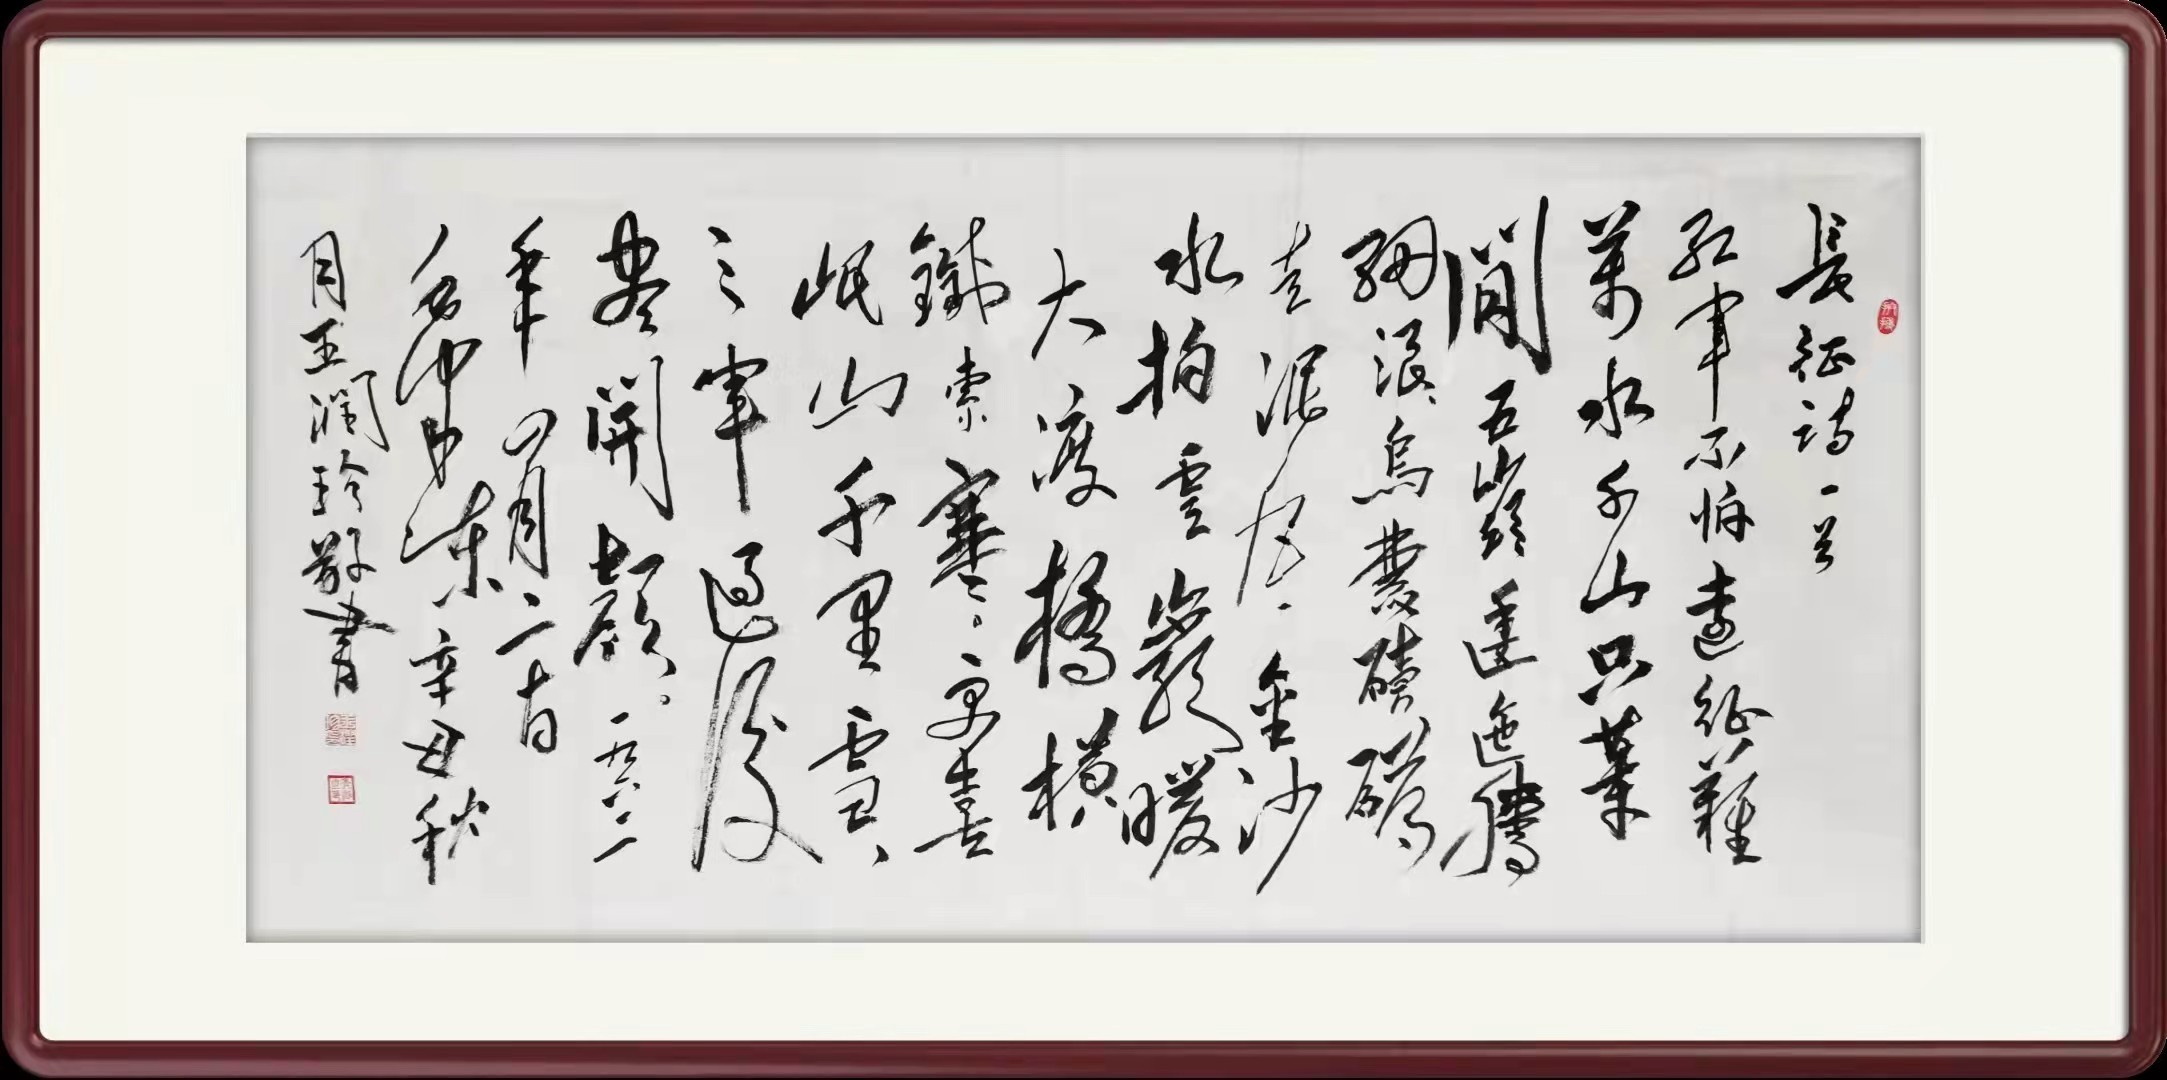 長征詩一首
红軍不怕遠征難
萬水千山只等
閒五嶺逶迤騰
細浪烏蒙磅礴
走泥丸、金沙
水拍雲巖暖
大渡橋横
鐵索寒、更喜
岷山千里雪、
三軍過後
盡開顔。一九六二
年四月二十日
東辛丑秋
月王潤玲敬書